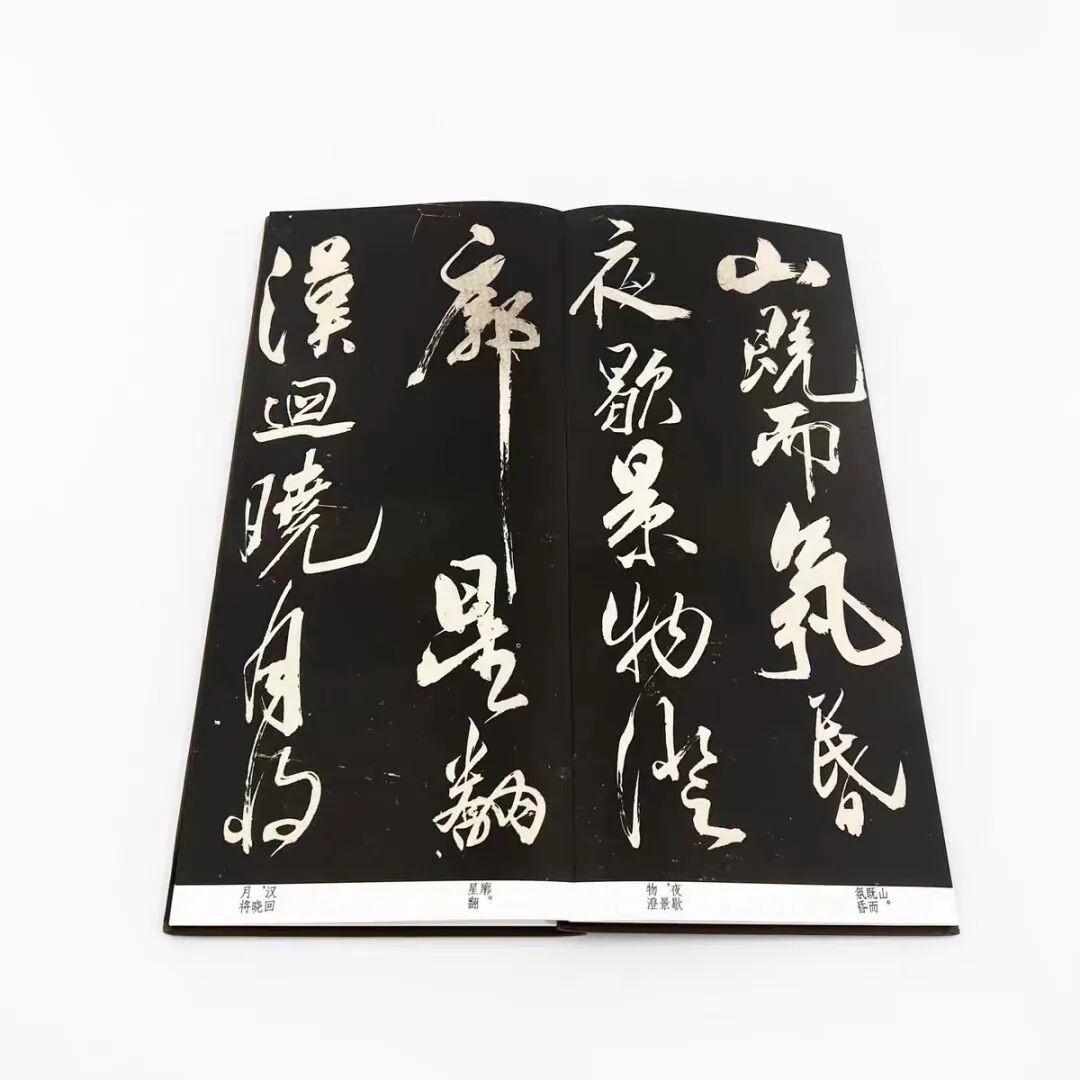 山既而氛昏
夜歇景物澄
廓星翻
漢迴曉月将
山。既而
氛昏
夜歇
，景
物澄
廓。
星翻
汉回
，晓
月将